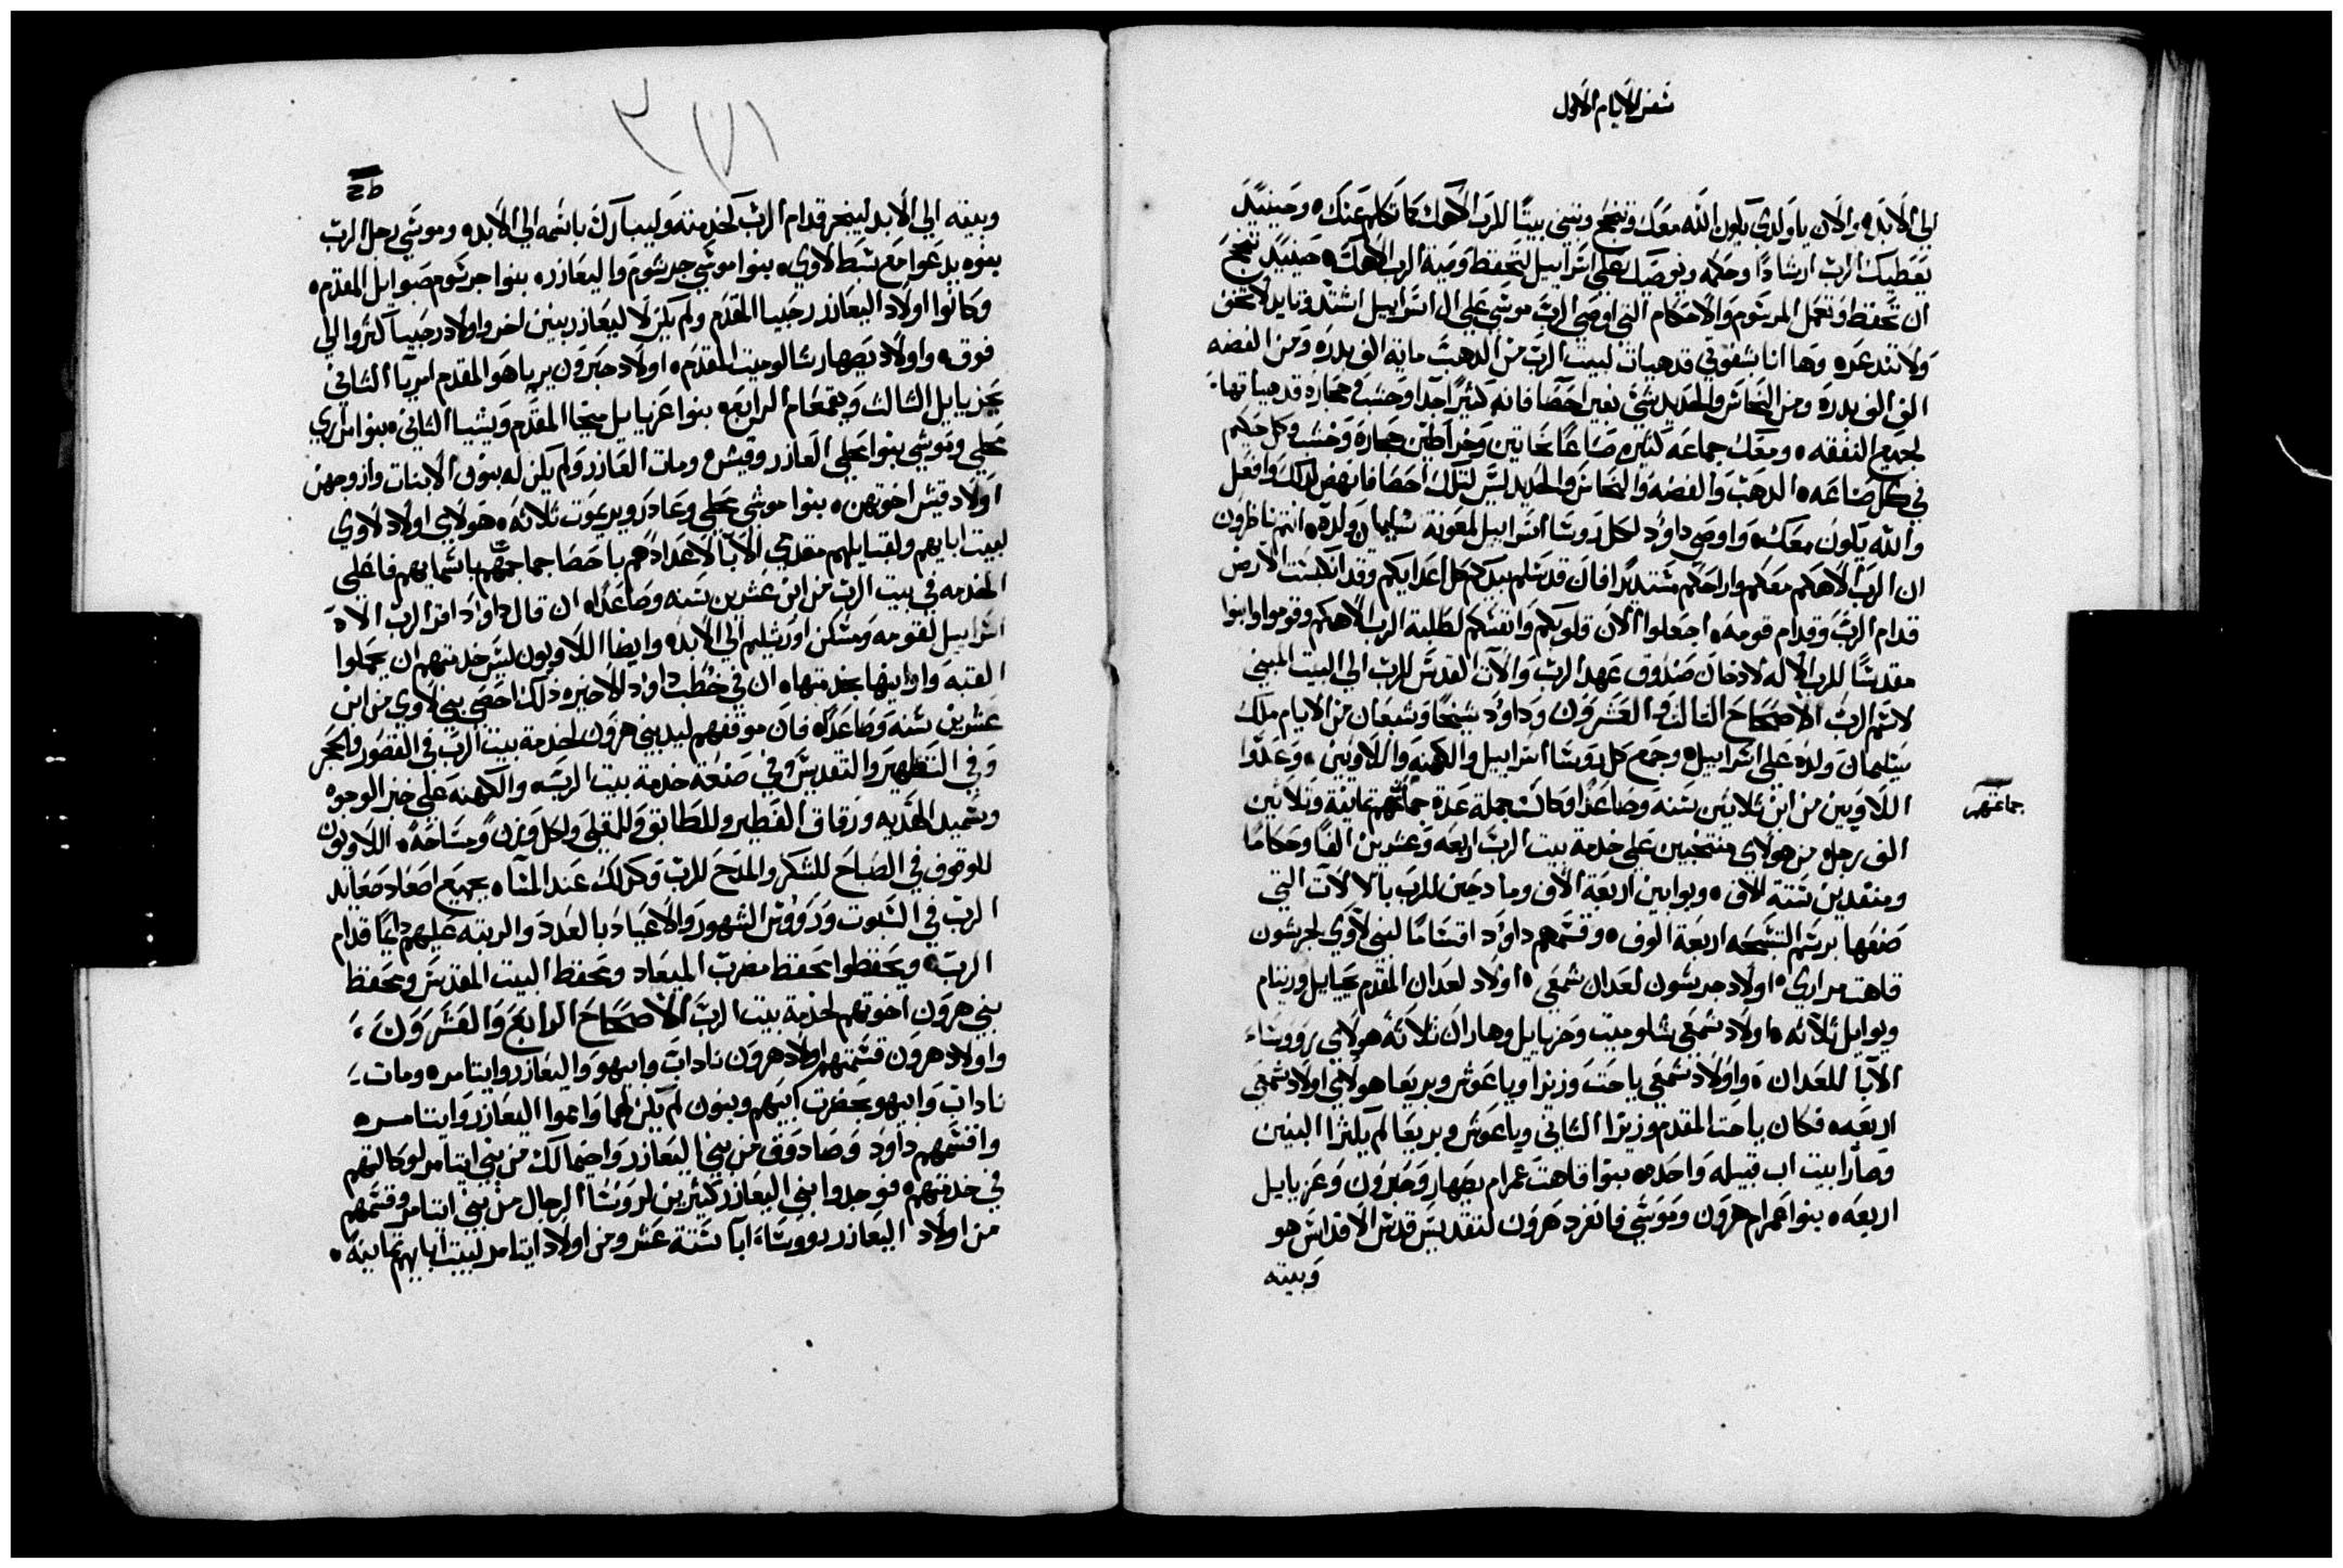 سفر الايام الاول
الي الابد والان يا ولدي يكون الله معك وتنجح وتبني بيتًا للرب الاهك كما تكلم عنك وحينيدٍ
يعطيك الرب ارشادًا وحكمه ويوصيك علي اسراييل لتحفظ وصية الرب الاهك حينيدٍ تنجح
ان تحفظ وتعمل المرسوم والاحكام التي اوصي الرب موسي علي ال اسراييل اشتد وتايد لا تخف
ولا ترتعد وها انا بشقوتي قد هيات لبيت الرب من الدهب ماية الف بدره ومن الفضه
الف الف بدره ومن النحاس والحديد شي بغير احصا فانه كثيرًا جدًا وخشب وحجاره قد هياتها
لجميع النفقه ومعك جماعه كثيره صناعًا نحاتين وخراطين حجاره وخشب وكل حكيم
في كل صناعه الدهب والفضه والنحاس والحديد ليس لتلك احصا فانهض لذلك وافعل
والله يكون معك واوصي داود لكل روسا اسراييل لمعونة سليمان ولده انتم ناظرون
ان الرب الاهكم معكم واراحكم مستديرًا فان قد سلم بيدكم كل اعدايكم وقد انكبست الارض
قدام الرب وقدام قومه اجعلوا الان قلوبكم وانفسكم لطلبة الرب الاهكم وقوموا وابنوا
مقدسًا للرب الاله لادخال صندوق عهد الرب والات القدس للرب الي البيت المبني
لاسم الرب الاصحاح التالت والعشرون وداود شيخًا وشبعان من الايام ملك
سليمان ولده علي اسراييل وجمع كل روسا اسراييل والكهنه واللاويين وعدوا
اللاويين من ابن تلاتين سنه وصاعدًا فكانت جملة عدة جماجمهم تمانية وتلاتين
جماعتهم
الف رجل من هولاي منتخبين علي خدمة بيت الرب اربعه وعشرين الفًا وحكامًا
ومتقدمين ستة الاف وبوابين اربعة الاف ومادحين للرب بالالات التي
صنعها برسم التسبحه اربعة الوف وقسمهم داود اقسامًا لبني لاوي لجرشون
قاهت مراري اولاد جرشون لعدان شمعي اولاد لعدان المقدم يحيايل وريتام
ويوايل تلاته اولاد شمعي شلوميت وحزيايل وهاران تلاتة هولاي رووساء
الآبا للعدان واولاد شمعي ياحت وزيزا وياعوش وبريعا هولاي اولاد شمعي
اربعه فكان ياحت المقدم وزيزا التاني وياعوش وبريعا لم يكثرا البنين
وصارا بيت اب قبيله واحده بنوا قاهت عمرام يصهار وحبرون وعزيايل
اربعه بنوا عمرام هرون وموسي فانفرد هرون لتقديس قدس الاقداس هو
وبيته
٣٧١
وبيته الي الابد ليبخر قدام الرب لخدمته وليبارك باسمه الي الابد وموسي رجل الرب
بنوه يدعوا مع سبط لاوي بنوا موسي جرشوم واليعازر بنوا جرشوم صبوايل المقدم
وكانوا اولاد اليعازر رحبيا المقدم ولم يكن لاليعازر بنين اخر واولاد رحبيا كثروا الي
فوق واولاد يصهار شالوميت المقدم اولاد حبرون يرياهو المقدم امريا التاني
يحزيايل التالت ويقمعام الرابع بنوا عزيايل ميخا المقدم ويشيا التاني بنوا مراري
محلي وموشي بنوا محلي العازر وقيش ومات العازر ولم يكن له بنون الا بنات وازوجهن
اولاد قيش اخوتهن بنوا موشي محلي وعادر ويريموت تلاته هولاي اولاد لاوي
لبيت ابايهم ولقبايلهم مقدمي الابا لاعدادهم باحصا جماجمهم باسمايهم فاعلي
الخدمه في بيت الرب من ابن عشرين سنه وصاعدًا ان قال داود اقر الرب الاه
اسراييل لقومه ومسكن اورشليم الي الابد وايضا اللاويون ليس خدمتهم ان يحملوا
القبه واوانيها بخدمتها ان في خطب داود الاخيره ذلك احصي بني لاوي من ابن
عشرين سنه وصاعدًا فان موقفهم ليد بني هرون لخدمة بيت الرب في القصور والحجر
وفي التطهير والتقديس وفي صنعة خدمة بيت الرب والكهنه علي خبز الوجوه
وسميد الهديه ورقاق الفطير وللطابق وللمقلي ولكل وزن ومساحه اللاويون
للوقوف في الصباح للشكر والمدح للرب وكذلك عند المسا بجميع اصعاد صعايد
الرب في السبوت ورووس الشهور والاعياد بالعدد والرتبه عليهم دايمًا قدام
الرب ويحفظوا محفظ مضرب الميعاد ومحفظ البيت المقدس ومحفظ
بني هرون اخوتهم لخدمة بيت الرب الاصحاح الرابع والعشرون
واولاد هرون قسمتهم اولاد هرون ناداب وابيهو واليعازر وايتامر ومات
ناداب وابيهو بحضرت ابيهم وبنون لم يكن لهما واموا اليعازر وايتامر
واقسمهم داود وصادوق من بني اليعازر واخيمالك من بني ايتامر لوكالتهم
في خدمتهم فوجدوا بني اليعازر كثيرين لرووسا الرجال من بني ايتامر وقسمهم
من اولاد اليعازر رووساء آبآ ستة عشر ومن اولاد ايتامر لبيت ابايهم تمانيه